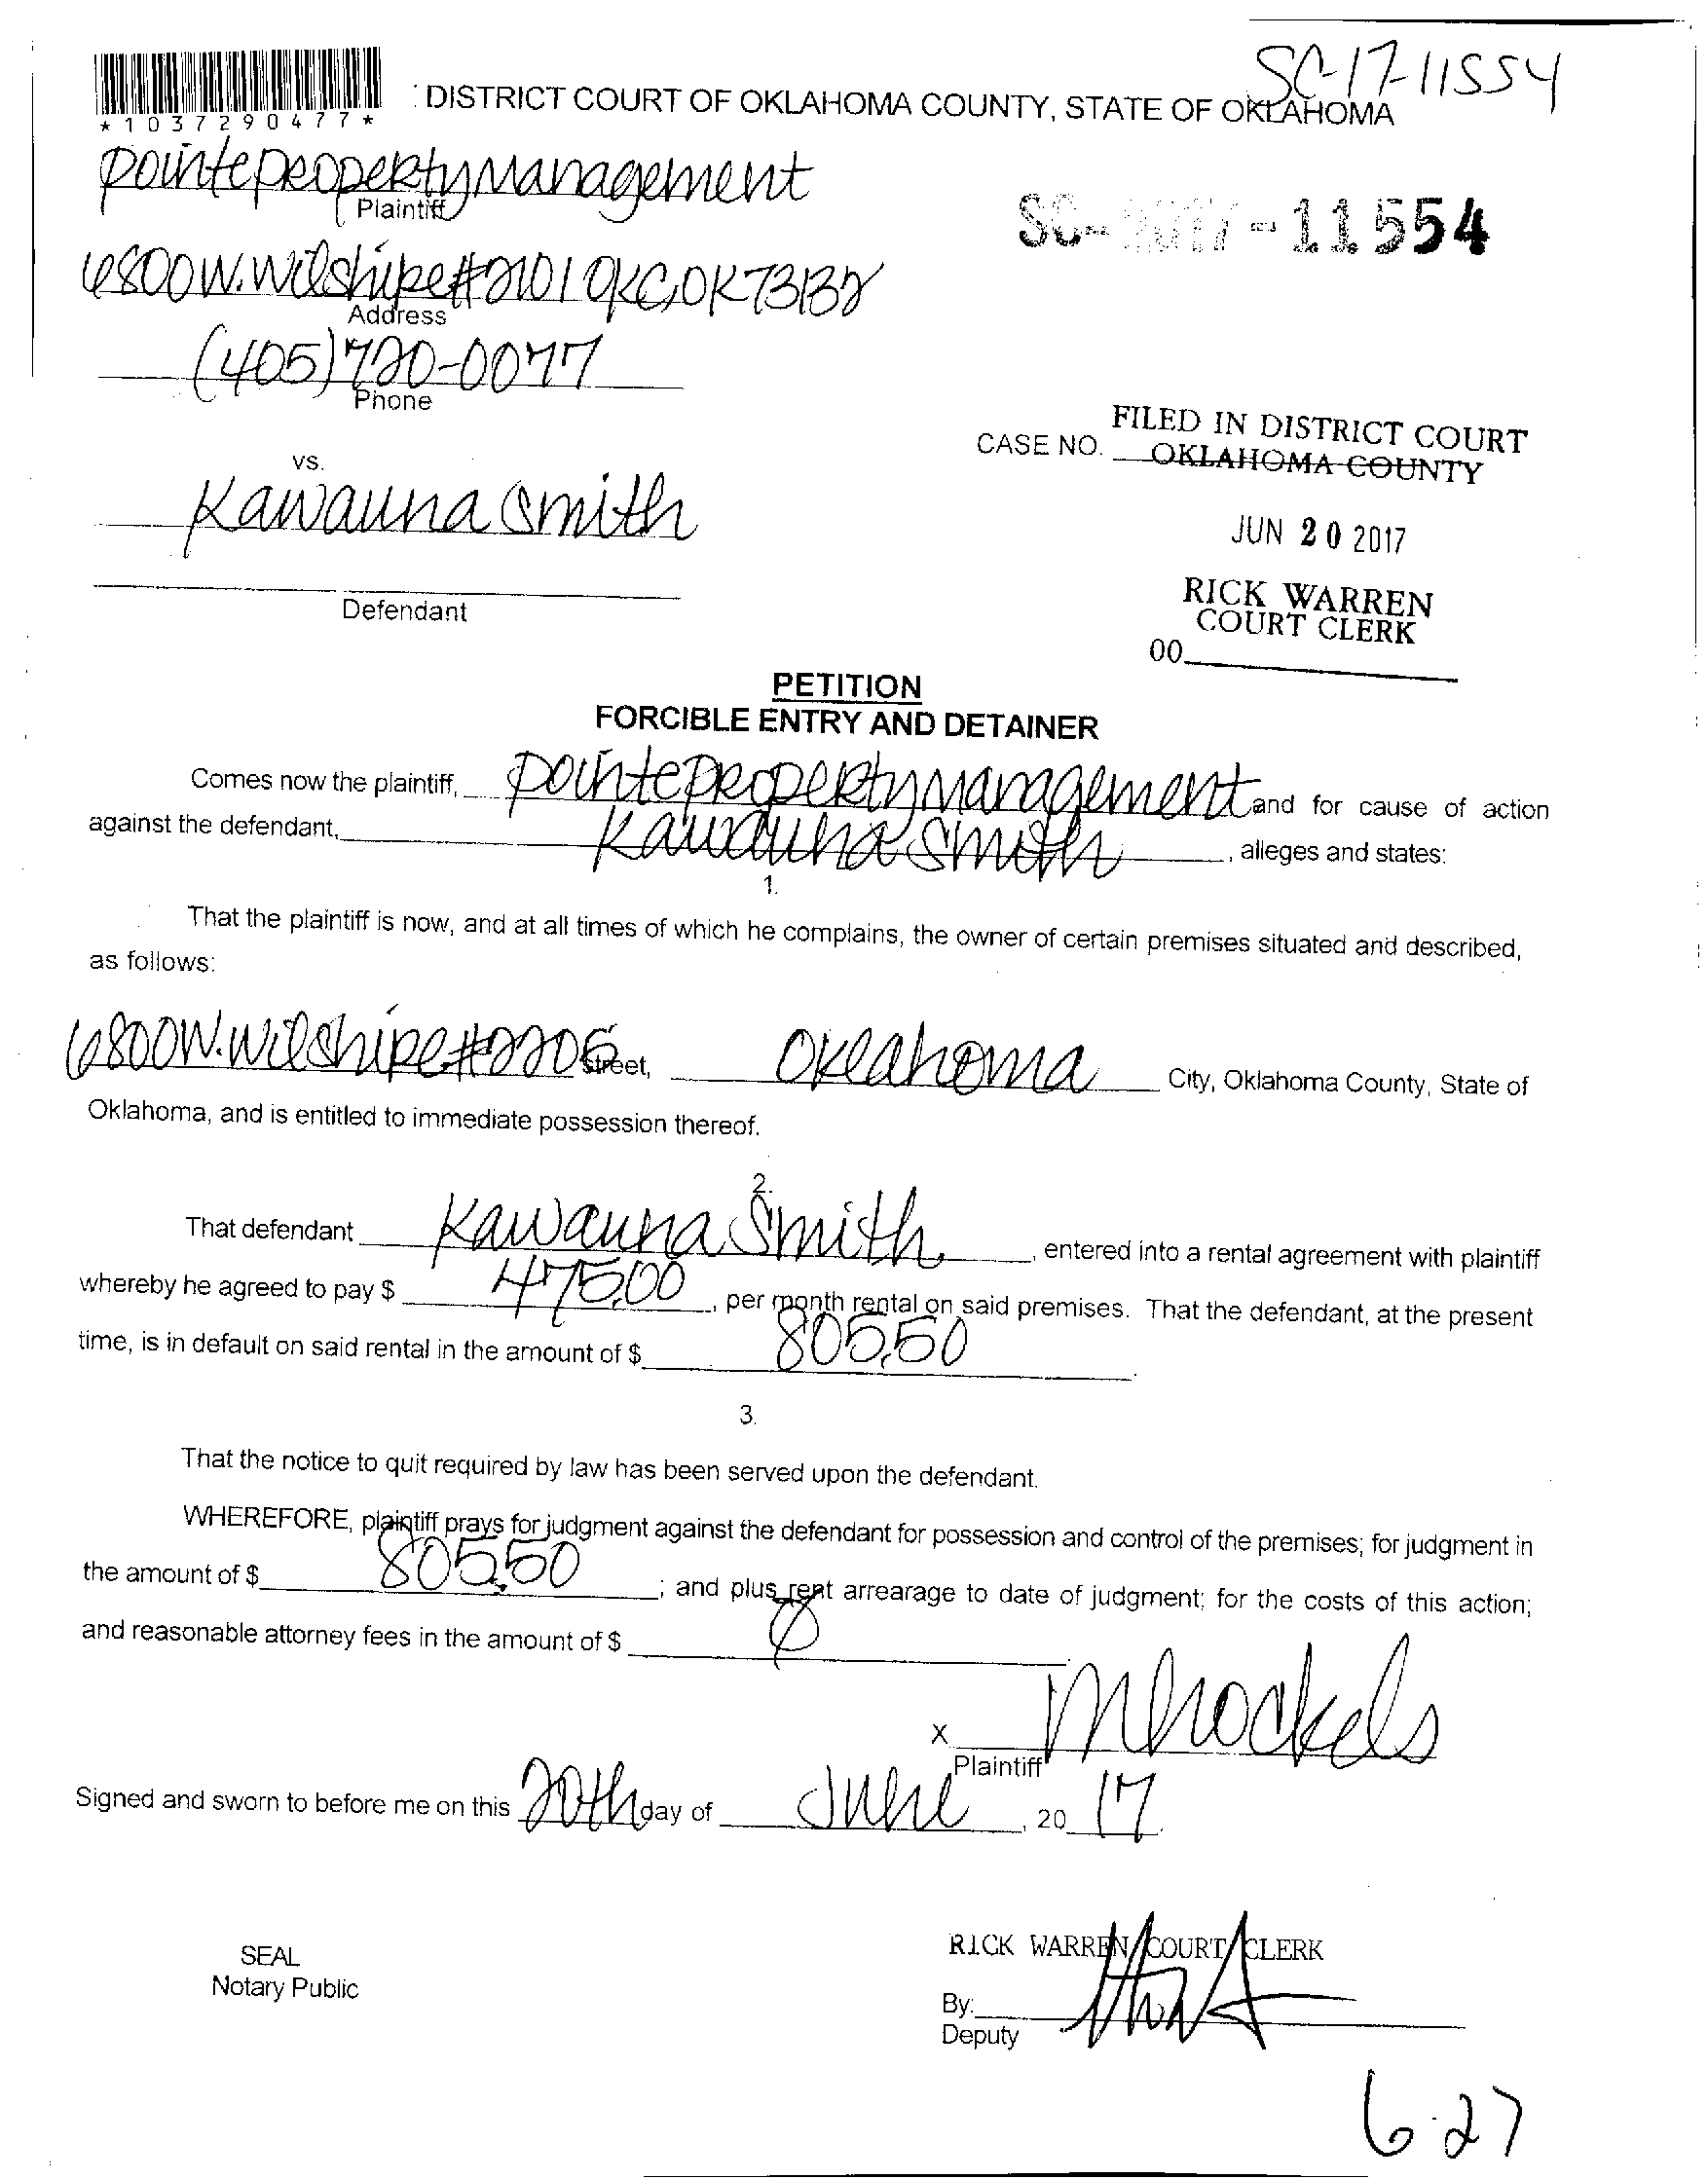 SC-17-11554
*1037290477*
DISTRICT COURT OF OKLAHOMA COUNTY, STATE OF OKLAHOMA
Pointe Property Management
Plaintiff
SC-2017-11554
6800 W. Wilshire #2101 OKC, OK 73132
Address
(405) 720-0077
Phone
FILED IN DISTRICT COURT
CASE NO. OKLAHOMA COUNTY
vs.
Kawauna Smith
JUN 20 2017
Defendant
RICK WARREN
COURT CLERK
00
PETITION
FORCIBLE ENTRY AND DETAINER
Comes now the plaintiff, Pointe Property Management and for cause of action
against the defendant, Kawauna Smith, alleges and states:
1.
That the plaintiff is now, and at all times of which he complains, the owner of certain premises situated and described,
as follows:
6800 W. Wilshire #2205 street, Oklahoma City, Oklahoma County, State of
Oklahoma, and is entitled to immediate possession thereof.
2.
That defendant Kawauna Smith, entered into a rental agreement with plaintiff
whereby he agreed to pay $ 475.00, per month rental on said premises. That the defendant, at the present
time, is in default on said rental in the amount of $ 805.50.
3.
That the notice to quit required by law has been served upon the defendant.
WHEREFORE, plaintiff prays for judgment against the defendant for possession and control of the premises; for judgment in
the amount of $ 805.50; and plus rent arrearage to date of judgment; for the costs of this action;
and reasonable attorney fees in the amount of $ 0
X
Plaintiff
Signed and sworn to before me on this 20th day of June, 20 17.
SEAL
Notary Public
RICK WARREN COURT CLERK
By:
Deputy
6-27